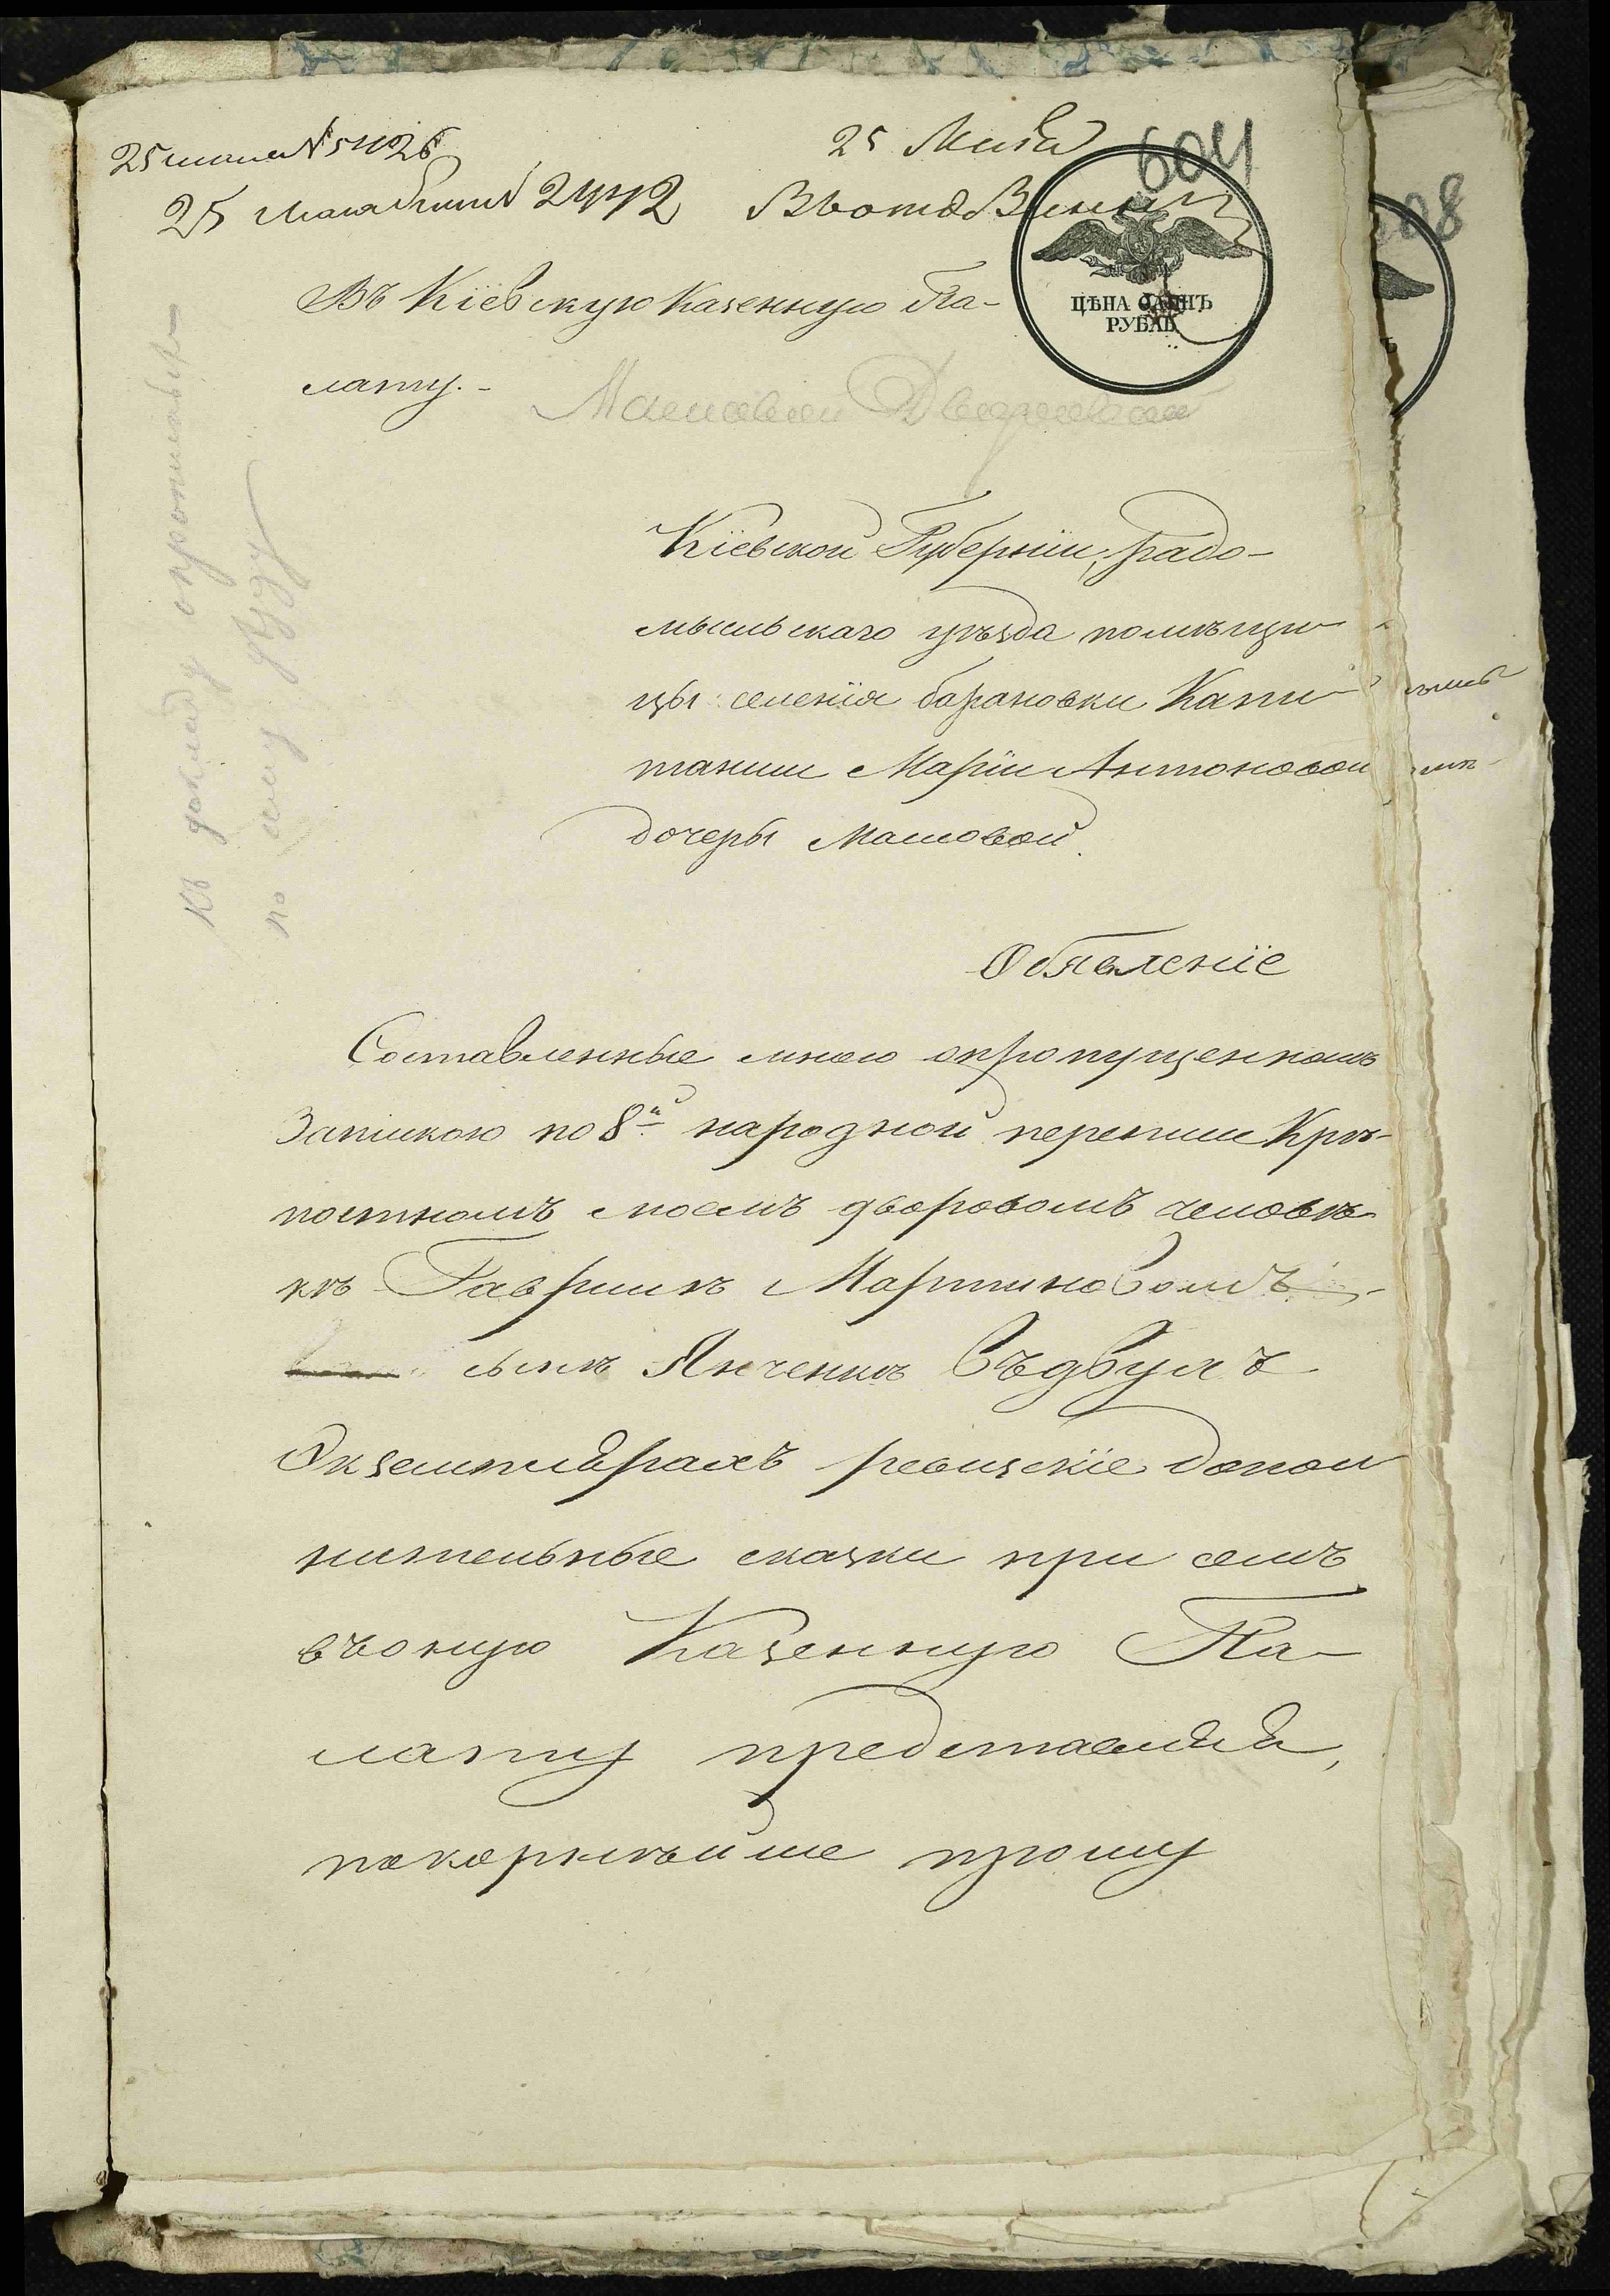 25 июня № 5426
25 июня 2442
25 Июня
604
ЦѢНА ОДИНЪ
РУБЛЬ
Въ Кіевскую Казенную Па-
лату.-
Кіевской Губерніи, радо-
мысльскаго уѣзда помѣщи-
цы селенія барановки Капи-
танши Маріи Антоновой
дочеры Машовой.
Объявленіе
Составленные мною опропущенномъ
Запискою по 8й народной переписи Крѣ-
постномъ моемъ дворовомъ человѣ-
кѣ Гаврилѣ Мартиновомъ
сынѣ Янченкѣ Въдвухъ
Экземплярахъ ревизскіе допол
нительные сказки при семъ
въоную Казенную Па-
лату представляя,
покорнѣйше прошу
къ докладу
по сему